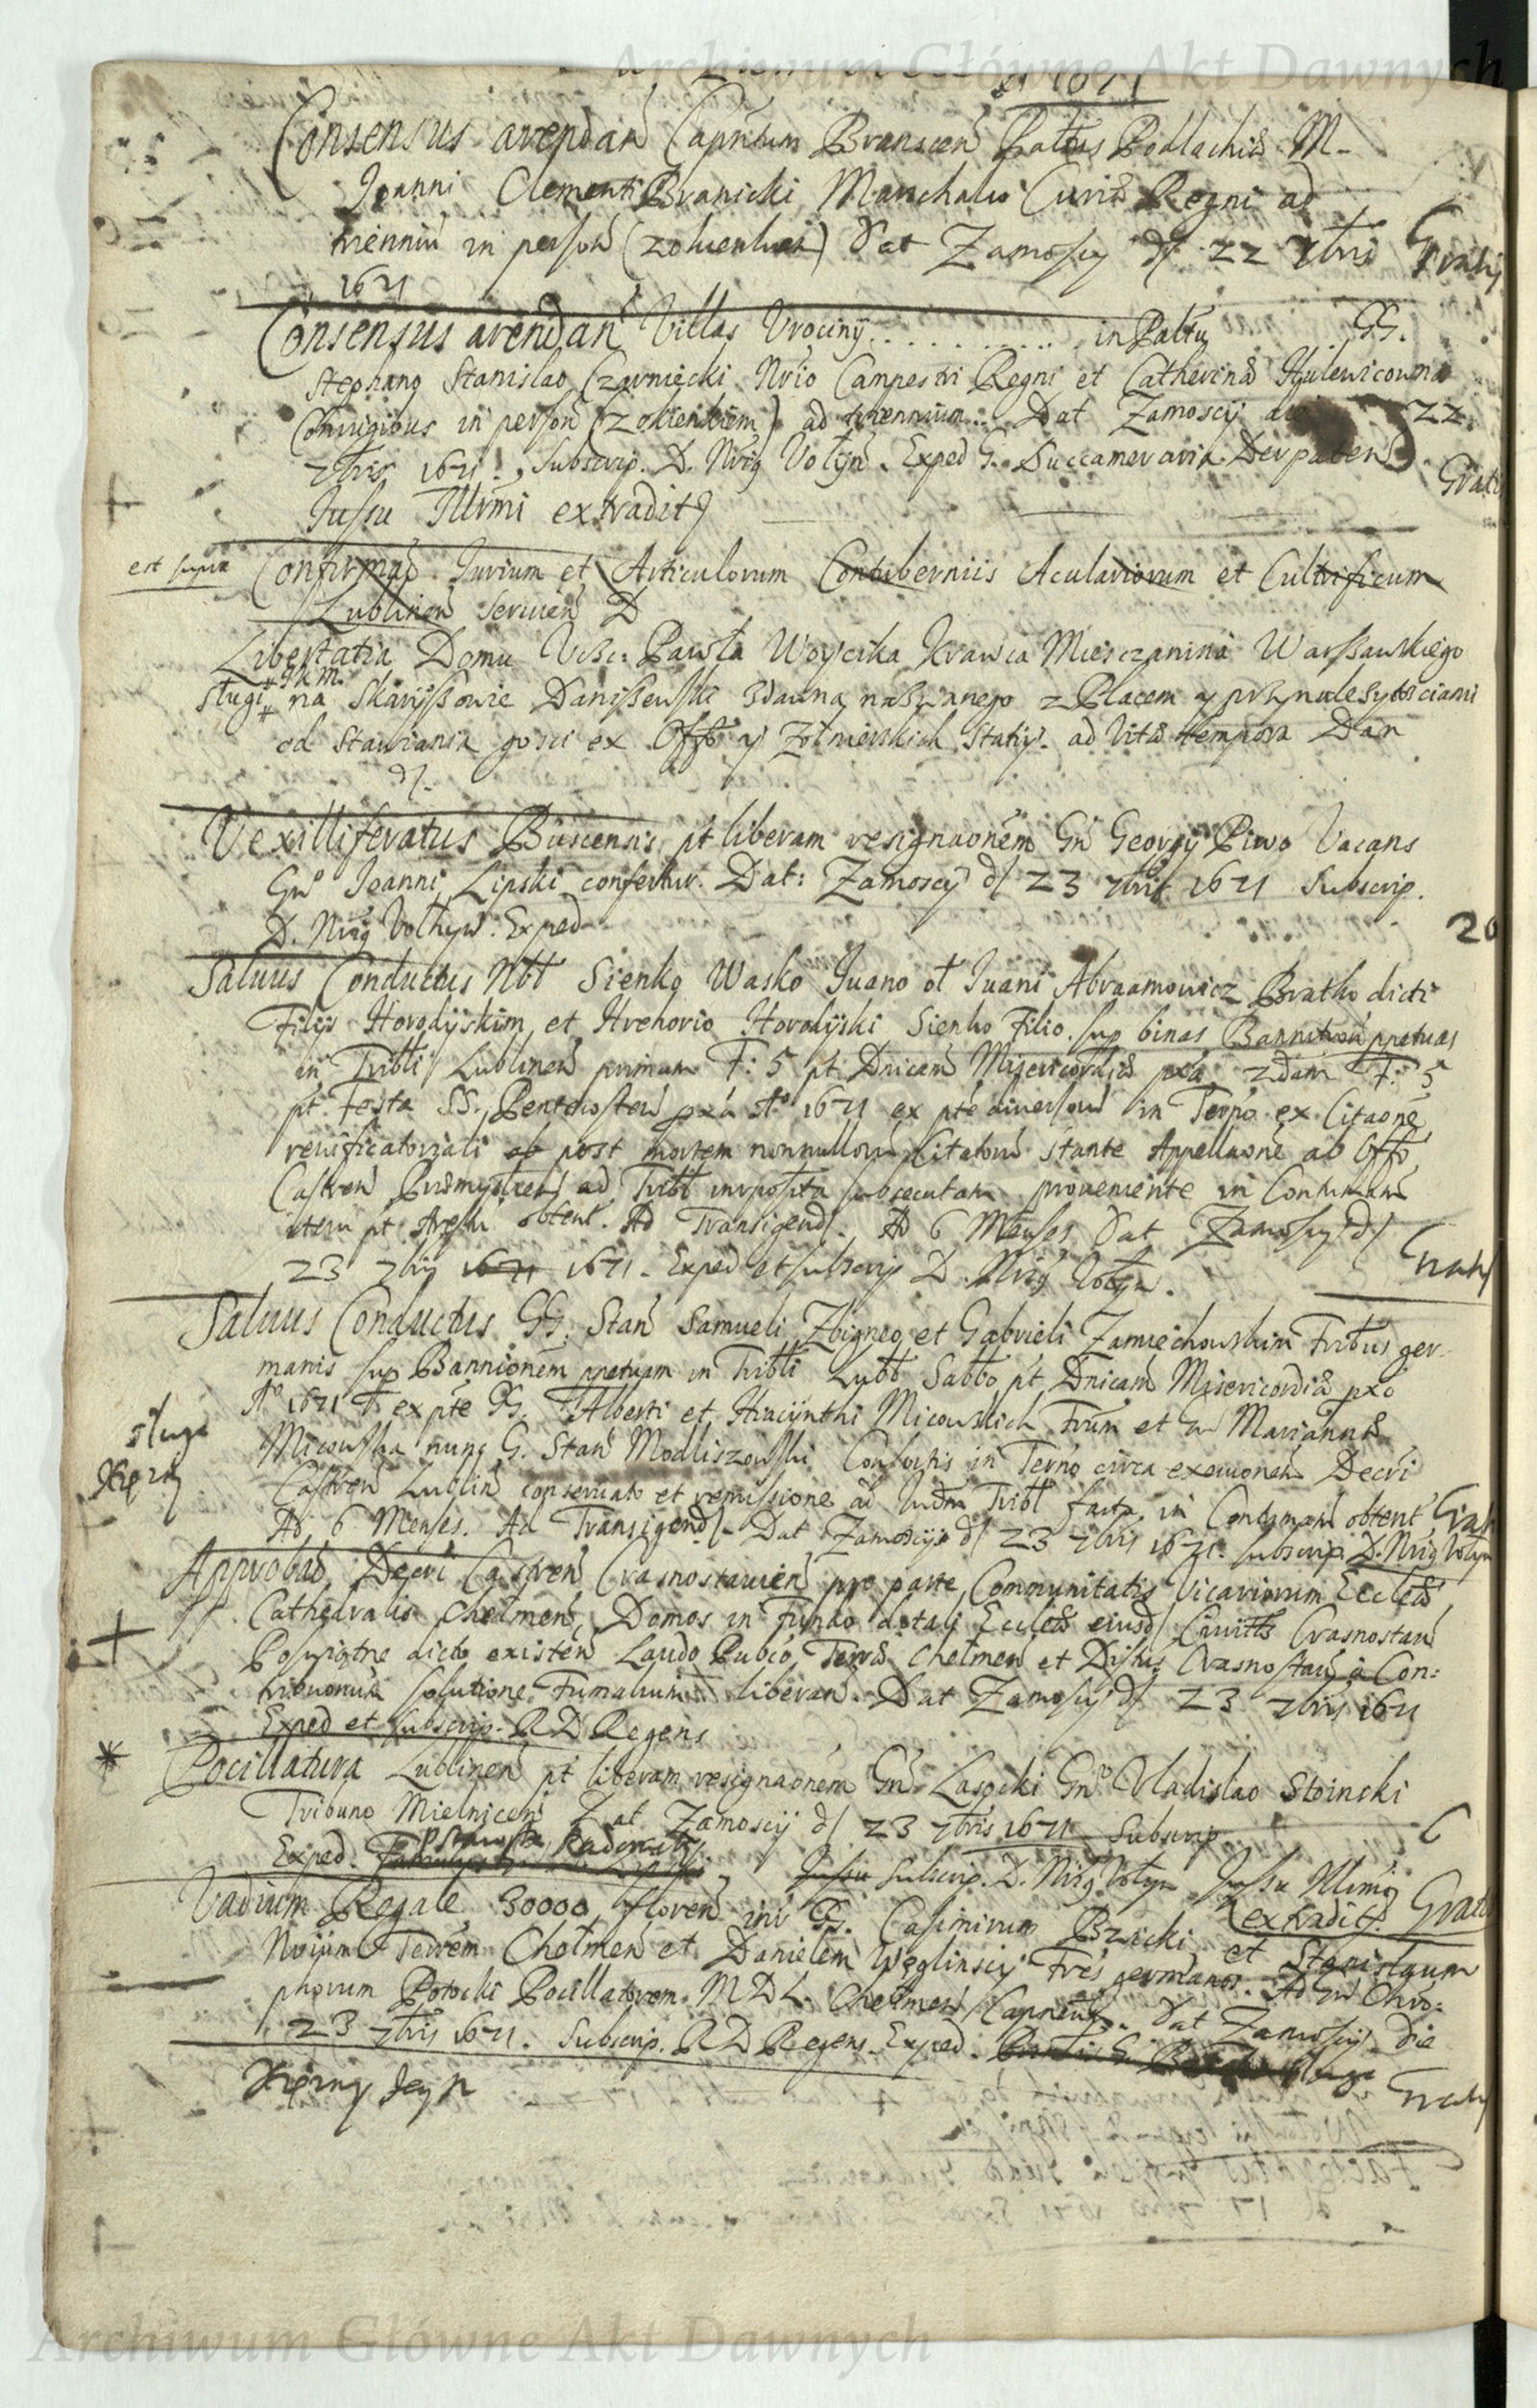 Archiwum Główne Akt Dawnych
1671
Consensus arendań Capneum Branscen Pałtus Podlachiæ M-
Joanni Clementi Branicki Marschalco Curiæ Regni ad
trienniu in person (zołuenhem) Dat Zamosiy d/ 22 7bris Gratis
1671
Consensus arendan Villas Vrociny . . . . . . . . . . in Pałtu . . . GG.
Stephano Stanislao Czarniecki Nrio Campestri Regni et Catherinæ Hulewicowna
Coniugibus in person ad triennium. Dat Zamoscij 22
7bris 1671. Subscrip. D. Nrig Volyn. Exped G. Succameraria Derpaten
Jussu Illrmi extradit Gratis
est supra Confirmao Jurium et Articulorum Contuberniis Aculariorum et Cultrificum
Lublinen seruien D
Libertatia Domu Vcść: Pawła Woycika Krawca Mieszczanina Warszawskiego
sługi JKM. na Skaryszowie Daniszewski zdawna nazwanego z Placem y przynalezytosciami
od stawiania gosci ex Offo y Zołnierskich Statiy. ad Vitæ tempora Dan
d/.
Vexilliferatus Buscensis pt liberam resignaonem Gn Georgij Piwo Vacans
Gno Joanni Lipski confertur. Dat: Zamoscij d/ 23 7bris 1671 Subscrip.
D. Nrig Volhyn: Exped
20
Saluus Conductus Nbł Sienko Wasko Juano oł Juani Abraamowicz Bratko dicti
Filijs Horodyskim et Hrehorio Horodyski Sienko Filio sup binas Bannition ppetuas
in Tribłi Lublinen primam F: 5 pt Dnicam Misericordiæ pxa 2dam F: 5
pt Festa SS. Pentecosten pxa Ao 1671 ex pte diuersoru in Termo ex Citaone
reuificatoriali post mortem nonnulloru Citatoru stante Appellaone ab Offo
Castren Præmyslien ad Tribł inrposita subsecutam proueniente in Contumam
item pt Arestu obtent. Ad Transigend/. Ad 6 Menses Dat Zamosiy d/
23 7bris 1671 1671. Exped et subscrip D. Nrig Volyn. Gratis
Saluus Conductus GG. Stan Samueli Zbigneo et Gabrieli Zamiechowskim Fribus ger-
manis sup Bannionem ppetuam in Tribłi Lubł Sabbo pt Dnicam Misericordiæ pxo
Ao 1671 F. ex pte GG. Alberti et Hiacijnthi Micowskich Frum et G Mariannæ
Micowska nunc G. Stan Modliszowski Consortis in Termo circa exeuonem Decri
Castren Lublin conseruato et remissione ad Judm Tribł facta in Contumam obtent Gratis
Ad 6 Menses. Ad Transigend/. Dat Zamoscij d/ 23 7bris 1671. subscrip. D. Nrig Volyn
sługa
Approbao Decri Castren Crasnostauien pro parte Communitatis Vicariorum Ecclæ
Cathedralis Chełmen, Domos in fundo dotali Ecclæ eiusd/ Ciuitts Crasnostau
dicto existen Laudo Publco Terræ Chełmen et Distus Crasnostau à Con:
tribuonum solutione Fumalium liberan. Dat Zamosiy d/ 23 7bris 1671
Exped et subscrip. RD Regens
Pocillatura Lublinen pt liberam resignaonem Gn Lasocki Gno Vladislao Stoinski
Tribuno Mielnicen Dat Zamoscij d/ 23 7bris 1671 Subscrip
Exped. Jussu Subscrip. D. Nrig Volyn Jussu Illmi
extradit. Gratis
Vadium Regale 30000 floren inr GG. Casimirum Brzicki et Stanislaum
Nrium Terrem Chołmen et Danielem Węglinsciy Fres germanos. Ad Gn Chris:
phorum Potocki Pocillatorem MDL. Chełmen Capneum. Dat Zamosiy Die
23 7bris 1671. Subscrip. RD Regens. Exped. Gratis
Archiwum Główne Akt Dawnych